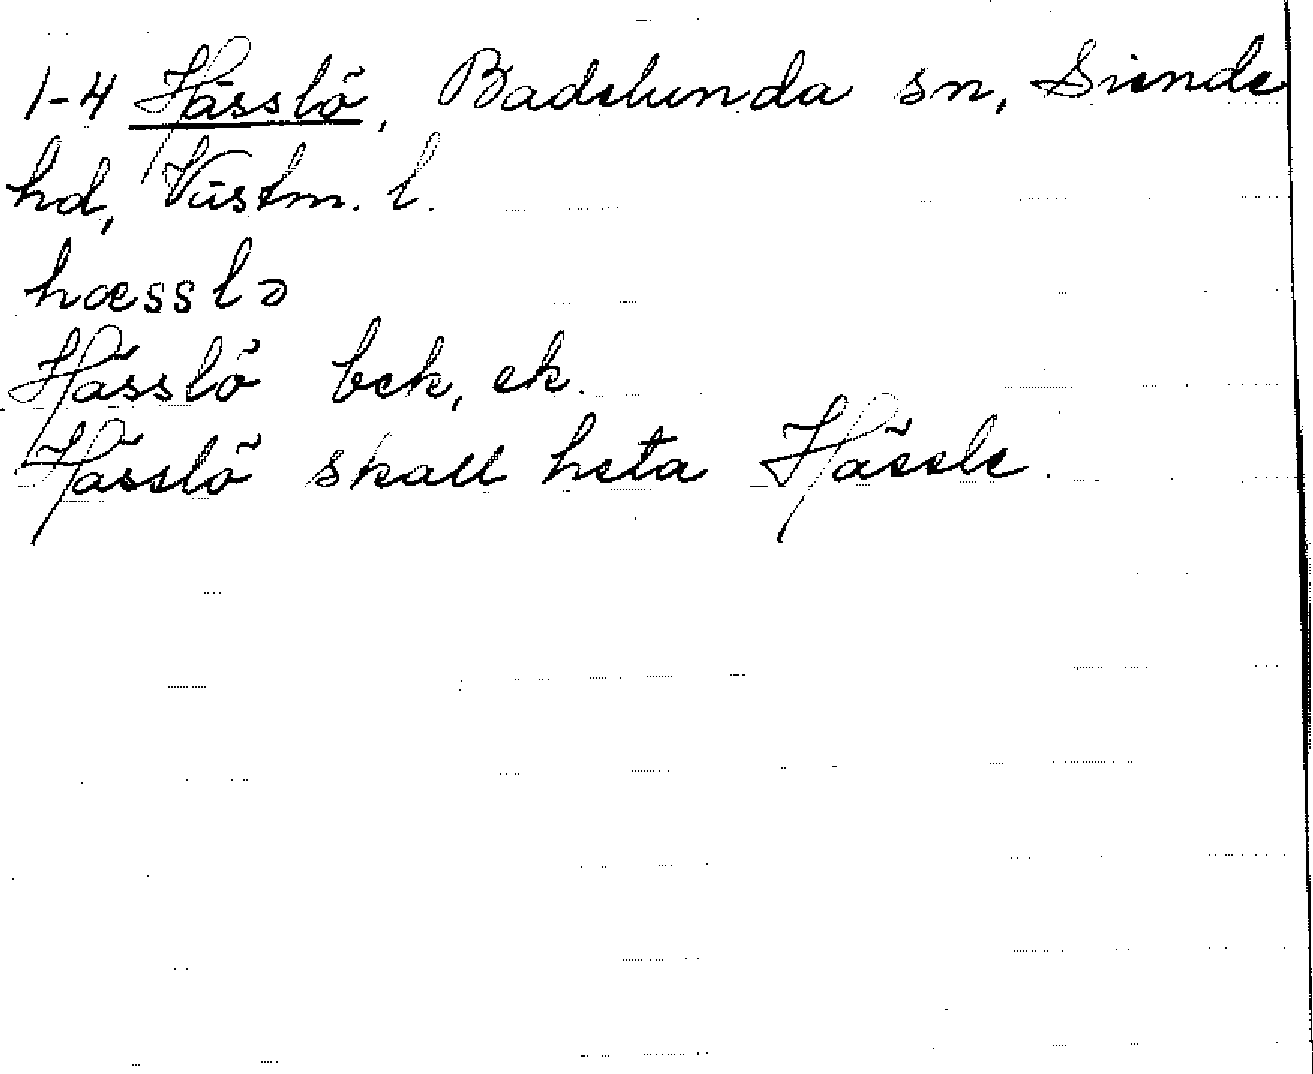 1-4 Hässlö, Badelunda sn, Siende
hd, Västm. l.
hæsslə
Hässlö bek, ek.
Hässlö skall heta Hässle.